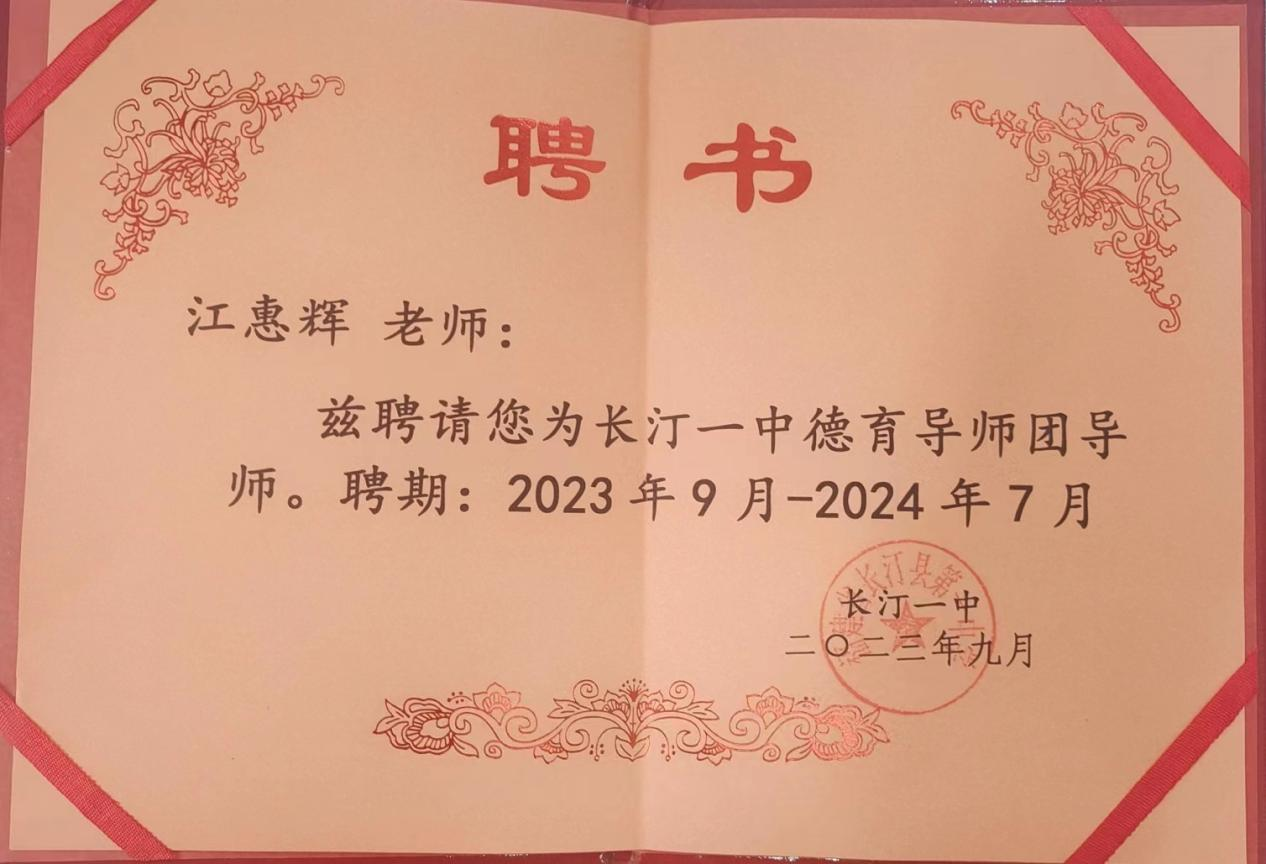 聘书
江惠辉 老师：
兹聘请您为长汀一中德育导师团导
师。聘期：2023年9月-2024年7月
长汀一中
二〇二三年九月
长汀县第一